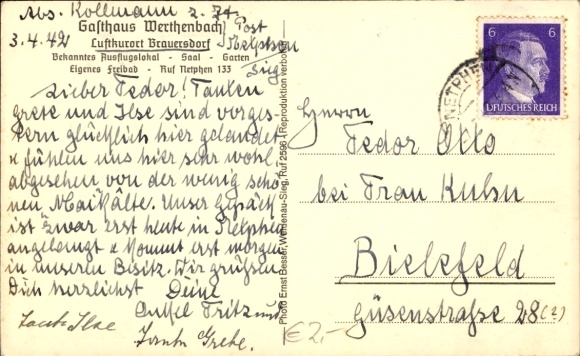 Abs. Kollmann z. Zt.
Gasthaus Werthenbach
Post
3.4.42
Luftkurort Brauersdorf
Netphen
Bekanntes Ausflugslokal - Saal - Garten
Sieg
Eigenes Freibad - Ruf Netphen 133
Lieber Fedor! Tanten
Grete und Ilse sind vorges-
tern glücklich hier gelandet
u fühlen uns hier sehr wohl,
abgesehen von der wenig schö-
nen Maikälte. Unser Gepäck
ist zwar erst heute in Netphen
angelangt u kommt erst morgen
in unseren Besitz. Wir grüssen
Dich herzlichst Deine
Onkel Fritz und
Tante Ilse
Tante Grete.
Photo Ernst Besser, Weidenau-Sieg, Ruf 2596 - Reproduktion verboten
6 6
DEUTSCHES REICH
NETPHEN
Herrn
Fedor Otto
bei Frau Kuhn
Bielefeld
Güsenstraße 28 (2)
€2,-